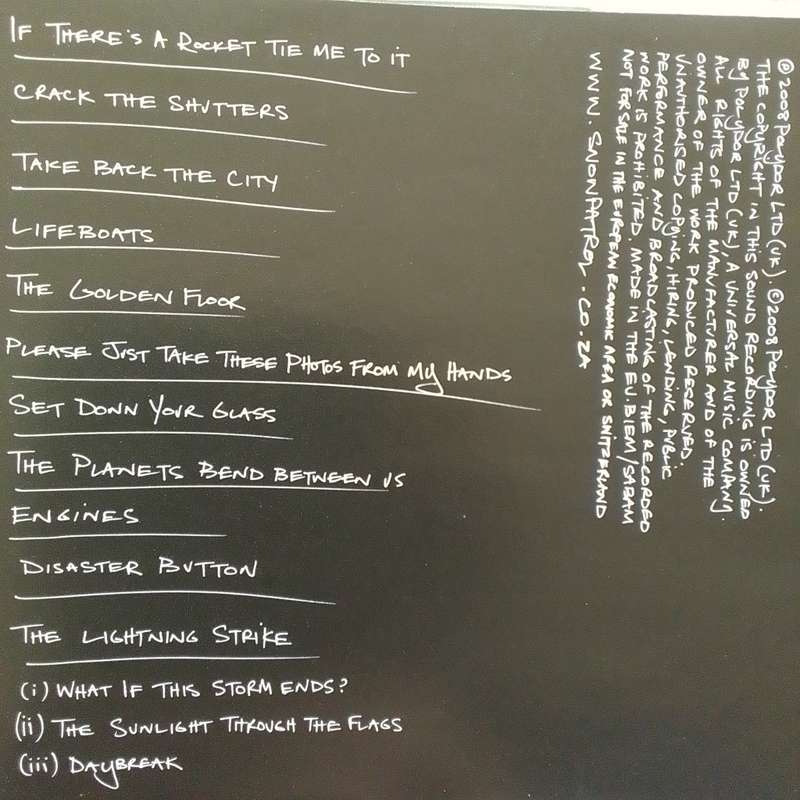 IF THERE'S A ROCKET TIE ME TO IT
CRACK THE SHUTTERS
TAKE BACK THE CITY
LIFEBOATS
THE GOLDEN FLOOR
PLEASE JUST TAKE THESE PHOTOS FROM MY HANDS
SET DOWN YOUR GLASS
THE PLANETS BEND BETWEEN US
ENGINES
DISASTER BUTTON
THE LIGHTNING STRIKE
(i) WHAT IF THIS STORM ENDS?
(ii) THE SUNLIGHT THROUGH THE FLAGS
(iii) DAYBREAK
℗ 2008 POLYDOR LTD (UK). © 2008 POLYDOR LTD (UK).
THE COPYRIGHT IN THIS SOUND RECORDING IS OWNED
BY POLYDOR LTD (UK), A UNIVERSAL MUSIC COMPANY.
ALL RIGHTS OF THE MANUFACTURER AND OF THE
OWNER OF THE WORK PRODUCED RESERVED.
UNAUTHORISED COPYING, HIRING, LENDING, PUBLIC
PERFORMANCE AND BROADCASTING OF THE RECORDED
WORK IS PROHIBITED. MADE IN THE EU. BIEM/SABAM
NOT FOR SALE IN THE EUROPEAN ECONOMIC AREA OR SWITZERLAND
WWW.SNOWPATROL.CO.ZA